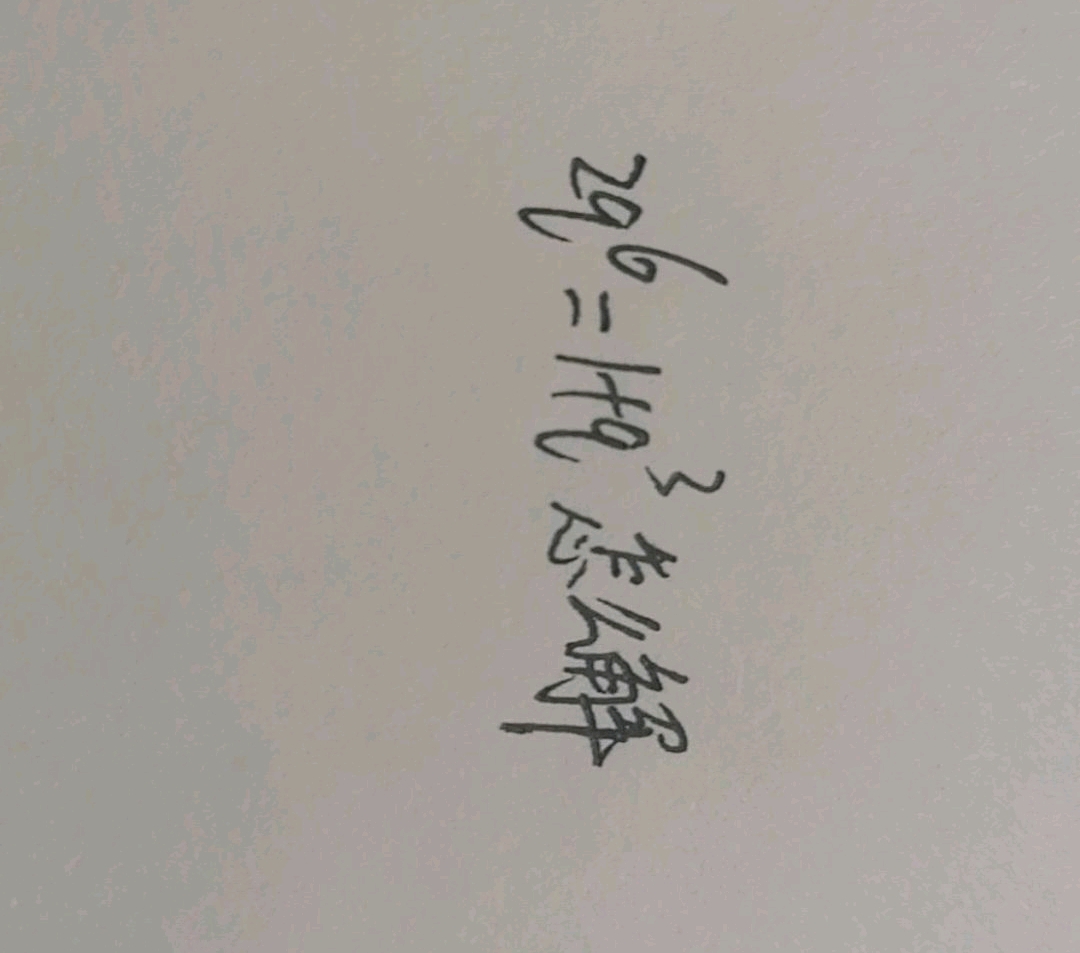 2q⁶=1+q³怎么解